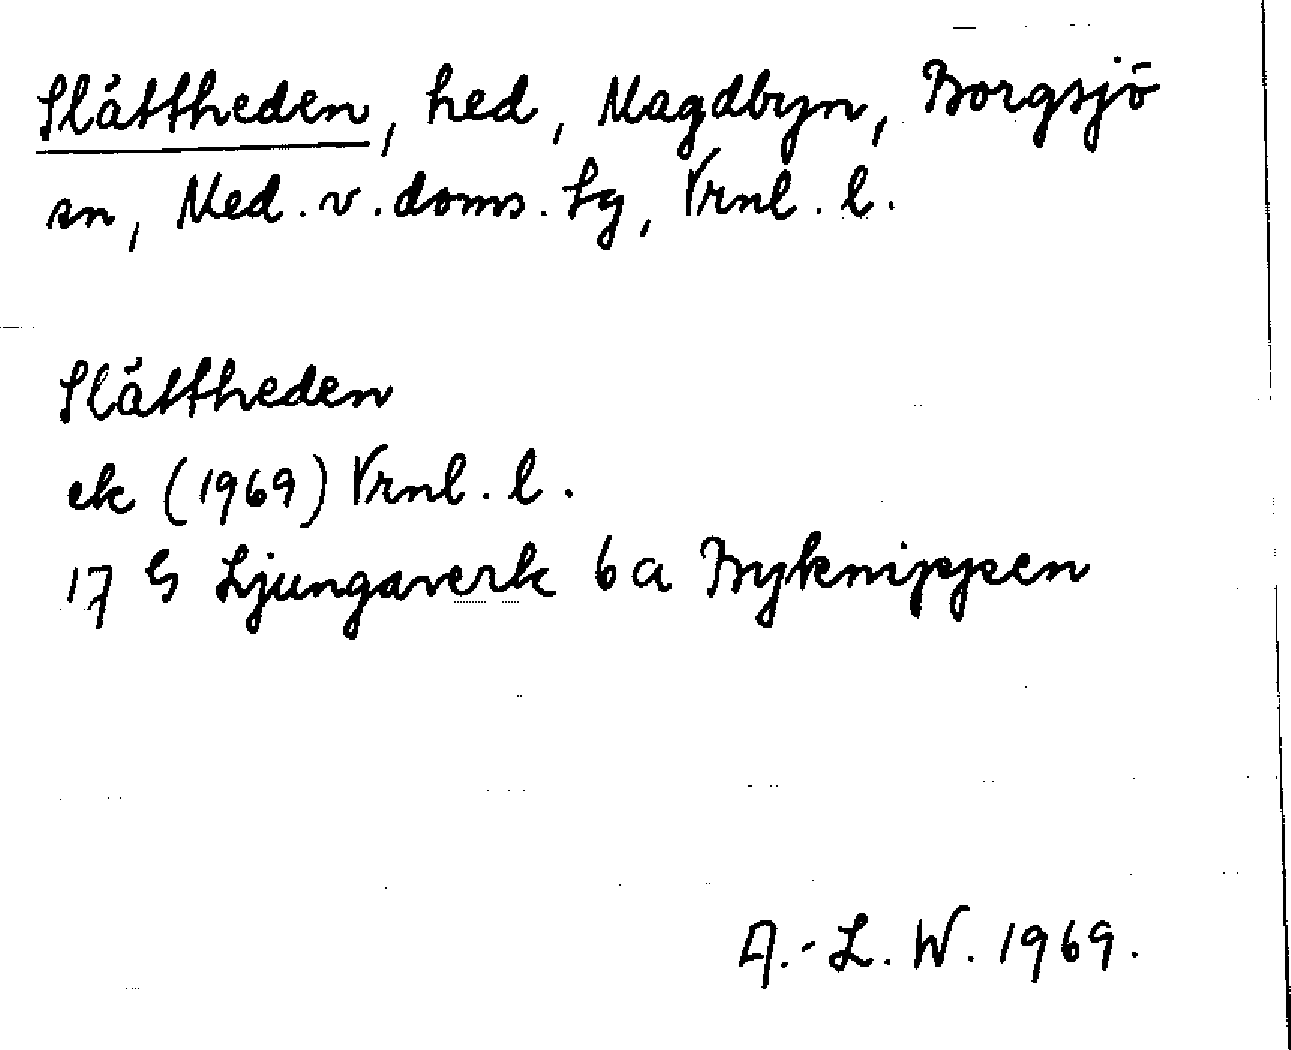 Slåttheden, hed, Magdbyn, Borgsjö
sn, Med. v. doms. Lg, Vrnl. l.
Slåttheden
ek (1969) Vrnl. l.
17 G Ljungaverk 6a Byknippen
A.-L. W. 1969.